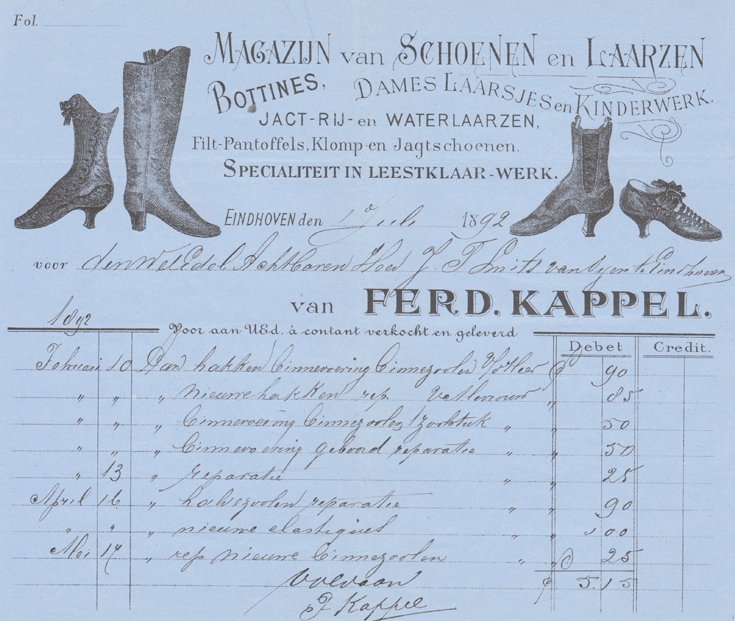 Fol.
MAGAZIJN van SCHOENEN en LAARZEN
BOTTINES, DAMES LAARSJES en KINDERWERK.
JACT-RIJ- en WATERLAARZEN,
Filt-Pantoffels, Klomp-en Jagtschoenen.
SPECIALITEIT IN LEESTKLAAR-WERK.
EINDHOVEN den 1 Juli 1892
voor den WelEdel Achtbaren Heer J. T. Smits van Oyen te Eindhoven
van FERD. KAPPEL.
1892
Voor aan UEd. à contant verkocht en geleverd
Debet Credit.
Februari 10 Aan hakken binnenvoering binnezoolen v/d Heer 90
" " " nieuwe hakken rep " 85
" " " binnenvoering binnezoolen 1 zoolstuk " " 50
" " " binnenvoering geboord reparatie " " 50
" 13 " reparatie " " 25
April 16 " halvezoolen reparatie " " 90
" " " nieuwe elastiques " " 00
Mei 14 " rep nieuwe binnezoolen " " 25
Voldaan 5.15
F Kappel